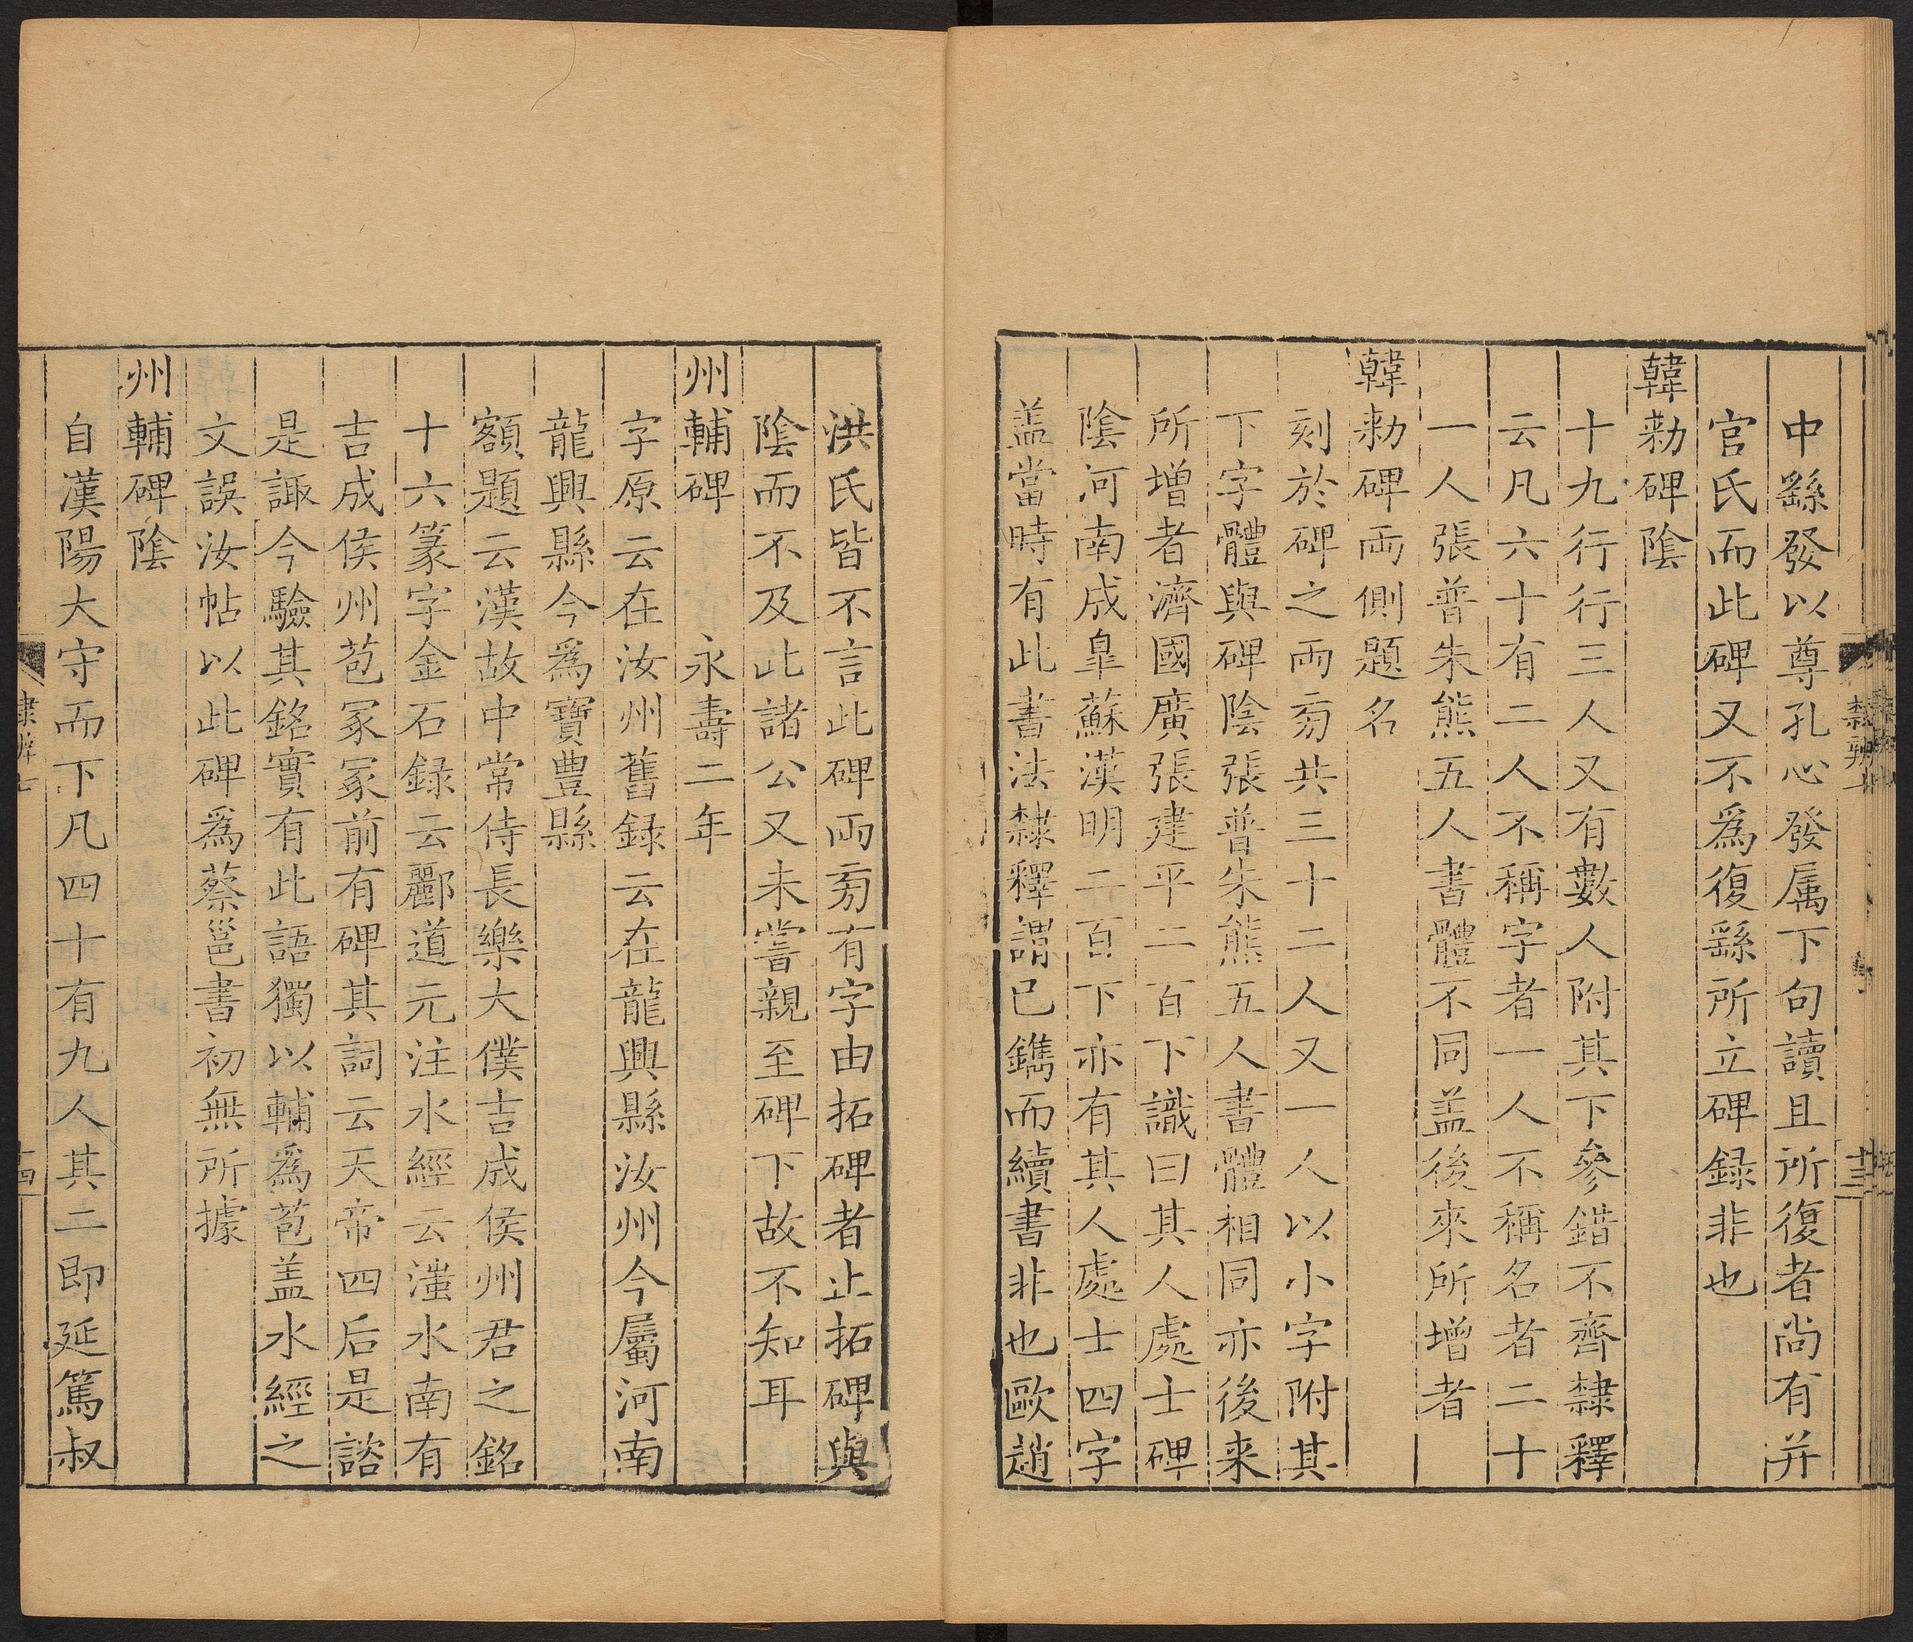 中繇發以尊孔心發属下句讀且所復者尚有并
官氏而此碑又不為復繇所立碑録非也
韓勑碑陰
十九行行三人又有數人附其下參錯不齊隸釋
云凡六十有二人不稱字者一人不稱名者二十
一人張普朱熊五人書體不同盖後來所增者
韓勑碑兩側題名
刻於碑之兩旁共三十二人又一人以小字附其
下字體與碑陰張普朱熊五人書體相同亦後来
所增者濟國廣張建平二百下識曰其人處士碑
陰河南成皐蘇漢明二百下亦有其人處士四字
盖當時有此書法隸釋謂已鐫而續書非也歐趙
洪氏皆不言此碑兩旁有字由拓碑者止拓碑與
陰而不及此諸公又未嘗親至碑下故不知耳
州輔碑 永壽二年
字原云在汝州舊録云在龍興縣汝州今屬河南
龍興縣今為寶豊縣
額題云漢故中常侍長樂大僕吉成侯州君之銘
十六篆字金石録云酈道元注水經云滍水南有
吉成侯州苞冢冢前有碑其詞云天帝四后是諮
是諏今驗其銘實有此語獨以輔為苞盖水經之
文誤汝帖以此碑為蔡邕書初無所據
州輔碑陰
自漢陽大守而下凡四十有九人其二即延篤叔